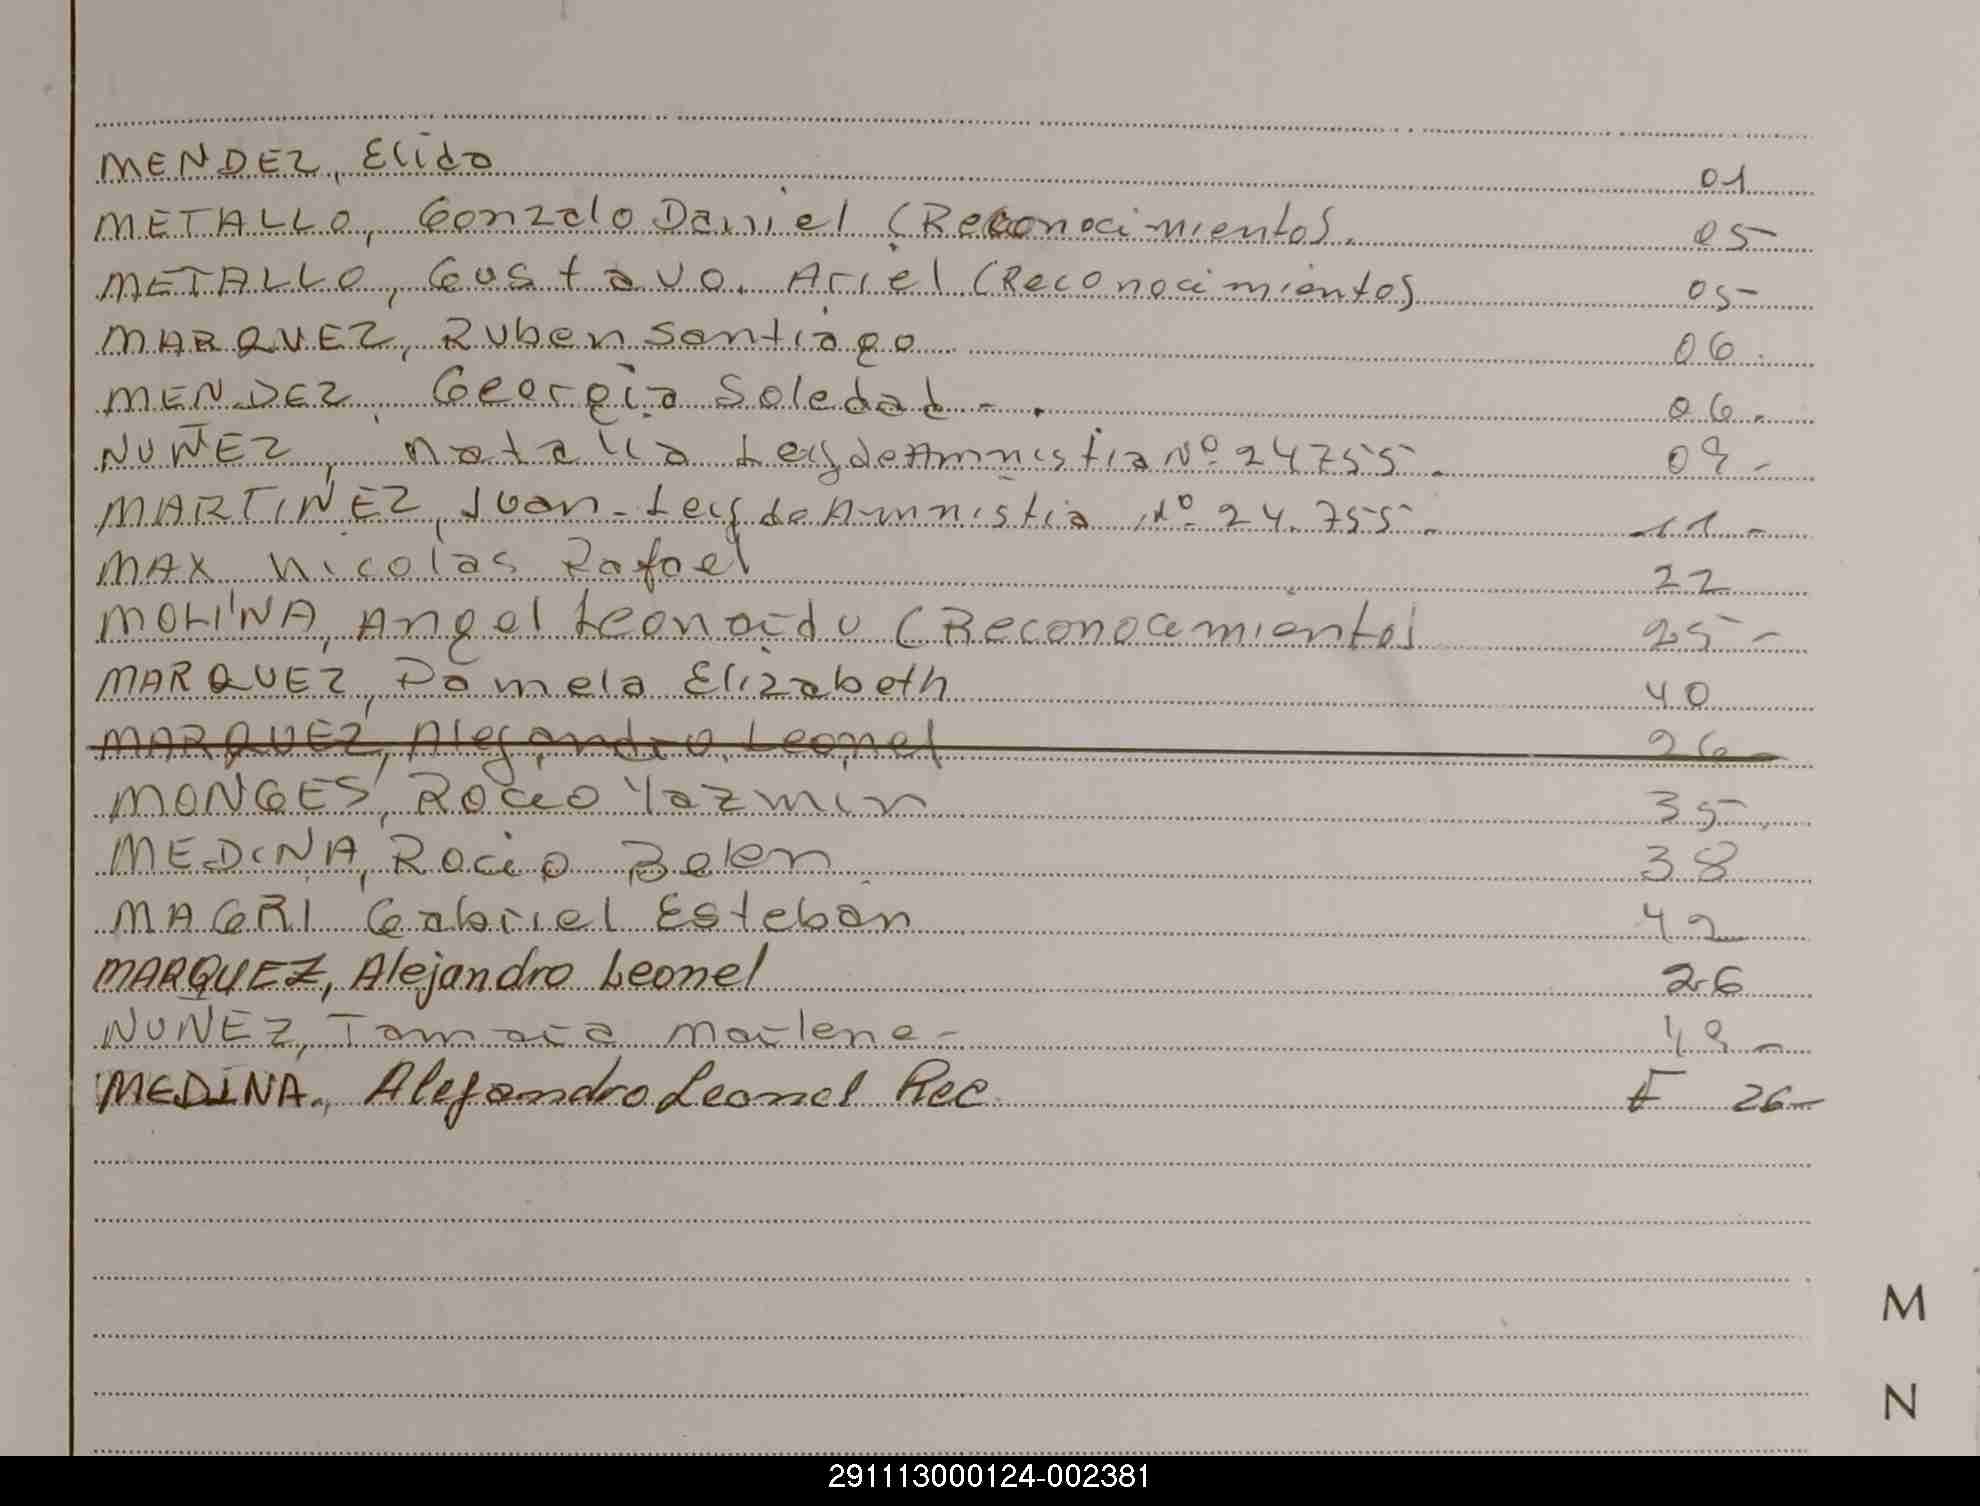 MENDEZ, Elido 01
METALLO, Gonzalo Daniel (Reconocimientos. 05-
METALLO, Gustavo. Ariel (Reconocimientos 05-
MARQUEZ, Ruben Santiago 06.
MENDEZ, Georgia Soledad - . 06.
NUÑEZ, Natalia Ley de Amnistia Nº 24755. 09-
MARTINEZ, Juan - Ley de Amnistia Nº 24.755. 11-
MAX Nicolas Rafael 22
MOLINA, Angel Leonardo (Reconocimiento) 25-
MARQUEZ, Pamela Elizabeth 40
MARQUEZ, Alejandro Leonel 26
MONGES, Rocio Yazmin 35.
MEDINA, Rocio Belen 38
MAGRI Gabriel Esteban 42
MARQUEZ, Alejandro Leonel 26
NUÑEZ, Tamara Marlene - 49-
MEDINA, Alejandro Leonel Rec 26-
M
N
291113000124-002381